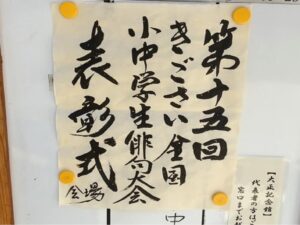 第十五回
きごさい全国
小中学生俳句大会
表彰式
会場
【大正記念館】
代表者の方は
窓口までお
中